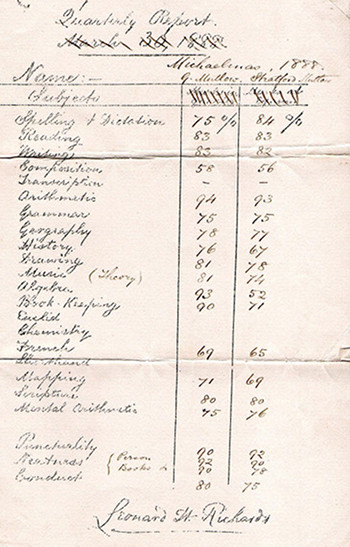 Quarterly Report.
March 30 1888.
Michaelmas, 1888.
Name:— G. Mutlow. Stratford Mutlow
Subjects
Spelling & Dictation 75 % 84 %
Reading 83 83
Writing 83 82
Composition 58 56
Transcription - -
Arithmetic 94 93
Grammar 75 75
Geography 78 77
History 76 67
Drawing 81 78
Music (Theory) 81 74
Algebra 93 52
Book-Keeping 90 71
Euclid
Chemistry
French 69 65
Shorthand
Mapping 71 69
Scripture 80 80
Mental Arithmetic 75 76
Punctuality 90 92
Neatness { Person 92 90
Books 90 78
Conduct 80 75
Leonard W. Rickards